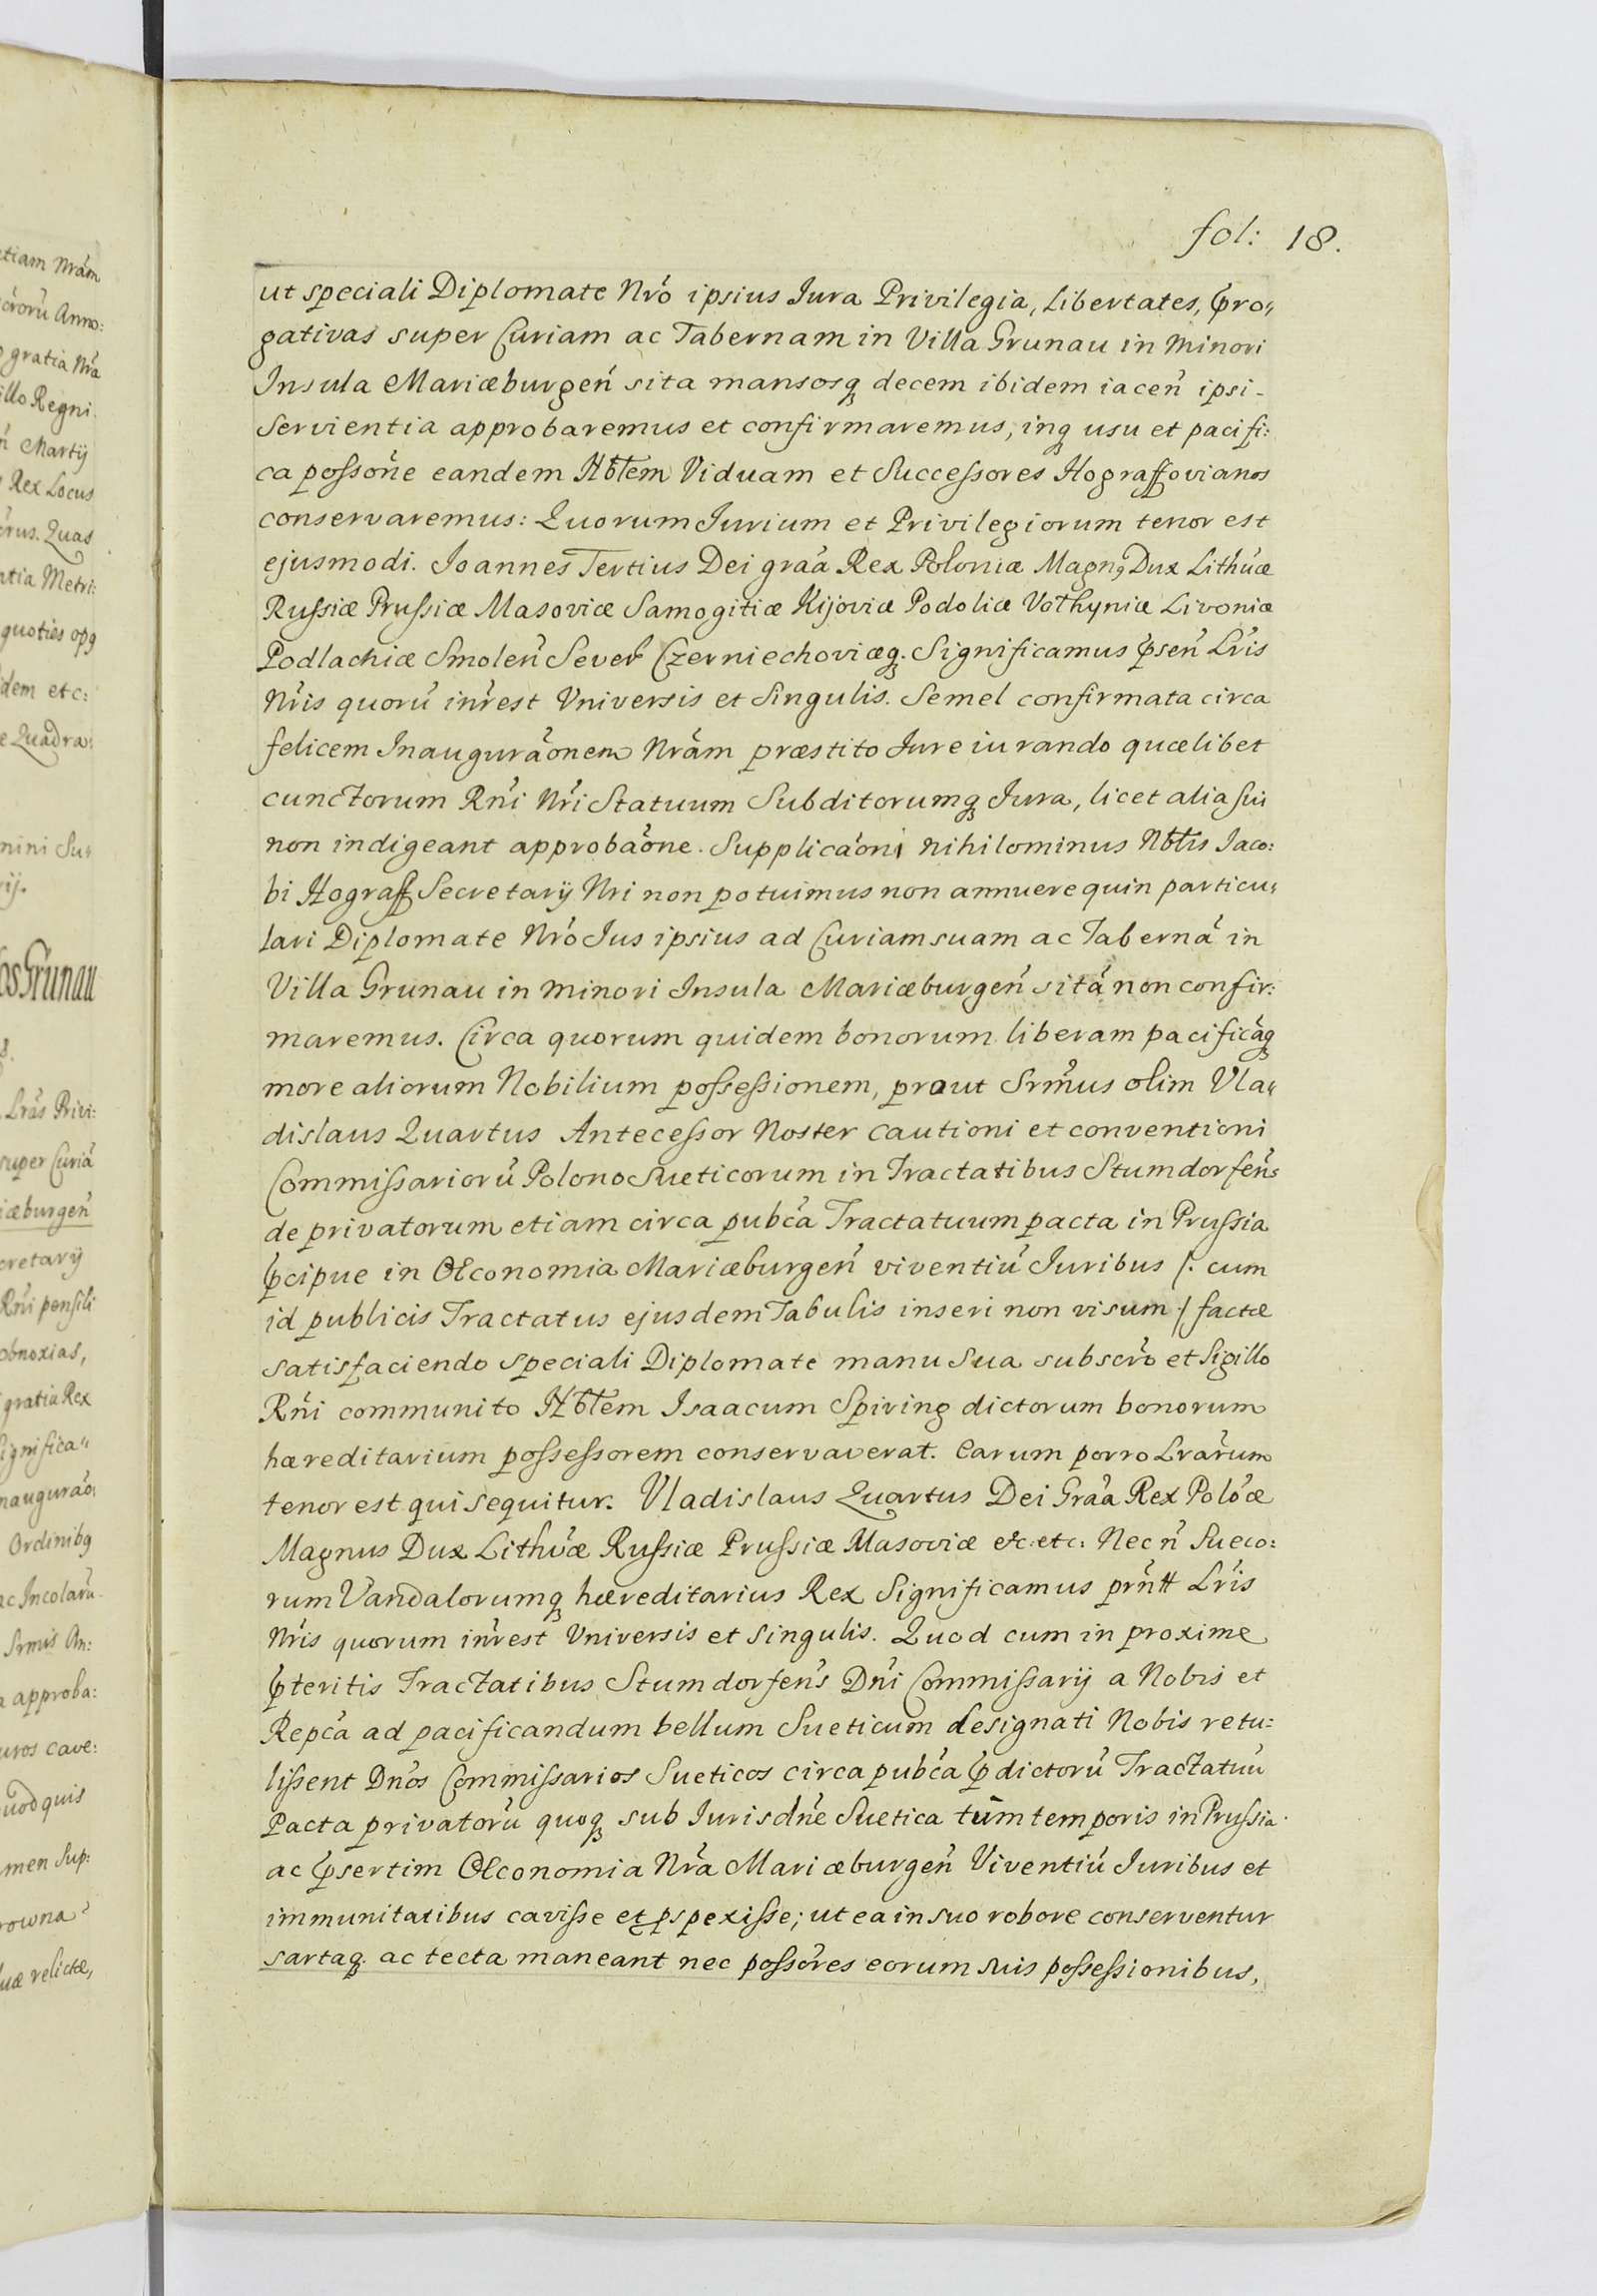 fol: 18.
ut speciali Diplomate Nrõ ipsius Jura Privilegia, Libertates, p̃ro„
gativas super Curiam ac Tabernam in Villa Grunau in Minori
Insula Mariæburgen̄ sita mansosq̨ decem ibidem iacen̄ ipsi-
servientia approbaremus et confirmaremus, inq̨ usu et pacifi:
ca possõne eandem Nb̃lem Viduam et Successores Hograffovianos
conservaremus: Quorum Jurium et Privilegiorum tenor est
ejusmodi. Joannes Tertius Dei graã Rex Poloniæ Magnꝰ Dux Lithuæ
Russiæ Prussiæ Masoviæ Samogitiæ Kijoviæ Podoliæ Volhyniæ Livoniæ
Podlachiæ Smolen̄ Sever̄ Czerniechoviæq̨. Significamus p̃sen̄ Lr̃is
Nr̃is quorũ inr̃est Vniversis et Singulis. Semel confirmata circa
felicem Inauguraõnem Nrãm præstito Jure iurando quælibet
cunctorum Rñi Nr̃i Statuum Subditorumq̨ Jura, licet alia sui
non indigeant approbaõne. Supplicaõni nihilominus Nb̃lis Jaco:
bi Hograff Secretarÿ Nri non potuimus non annuere quin particu„
lari Diplomate Nrõ Jus ipsius ad Curiam suam ac Tabernã in
Villa Grunau in minori Insula Mariæburgen̄ sitã non confir:
maremus. Circa quorum quidem bonorum liberam pacificãq̨
more aliorum Nobilium possessionem, prout Srm̃us olim Vla„
dislaus Quartus Antecessor Noster cautioni et conventioni
Commissariorũ Polono Sueticorum in Tractatibus Stumdorfen̄s
de privatorum etiam circa pubc̃a Tractatuum pacta in Prussia
p̃cipue in Œconomia Mariæburgen̄ viventiũ Juribus /: cum
id publicis Tractatus ejusdem Tabulis inseri non visum :/ factæ
satisfaciendo speciali Diplomate manu Sua subscr̃o et Sigillo
Rñi communito Nb̃lem Isaacum Spiring dictorum bonorum
hæreditarium possessorem conservaverat. Earum porro Lrãrum
tenor est qui sequitur. Vladislaus Quartus Dei Graã Rex Polõæ
Magnus Dux Lithũæ Russiæ Prussiæ Masoviæ etc: etc: Nec n̄ Sueco:
rum Vandalorumq̨ hæreditarius Rex Significamus prñtt Lr̃is
Nr̃is quorum inr̃est Vniversis et singulis. Quod cum in proxime
p̃teritis Tractatibus Stumdorfen̄s Dñi Commissarÿ a Nobis et
Repc̃a ad pacificandum bellum Sueticum designati Nobis retu:
lissent Dños Commissarios Sueticos circa pubc̃a p̃dictorũ Tractatuũ
Pacta privatorũ quoq̨ sub Jurisdñe Suetica tum temporis in Prussia
ac p̃sertim Œconomia Nrã Mariæburgen̄ Viventiũ Juribus et
immunitatibus cavisse et p̱spexisse; ut ea in suo robore conserventur
sartaq̨ ac tecta maneant nec possõres eorum suis possessionibus,